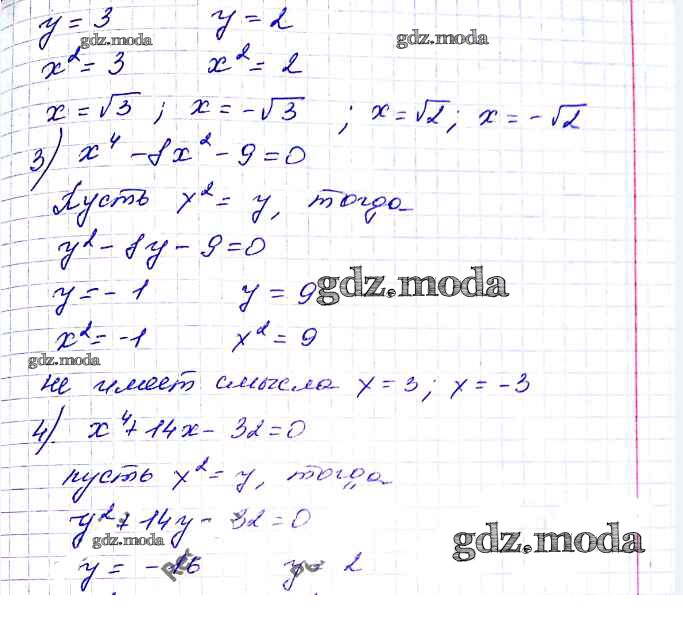 y = 3 y = 2
gdz.moda gdz.moda
x² = 3 x² = 2
x = √3 ; x = -√3 ; x = √2 ; x = -√2
3) x⁴ - 8x² - 9 = 0
Пусть x² = y, тогда
y² - 8y - 9 = 0
y = -1 y = 9 gdz.moda
x² = -1 x² = 9
gdz.moda
не имеет смысла x = 3; x = -3
4) x⁴ + 14x - 32 = 0
пусть x² = y, тогда
y² + 14y - 32 = 0
gdz.moda gdz.moda
y = -16 y = 2